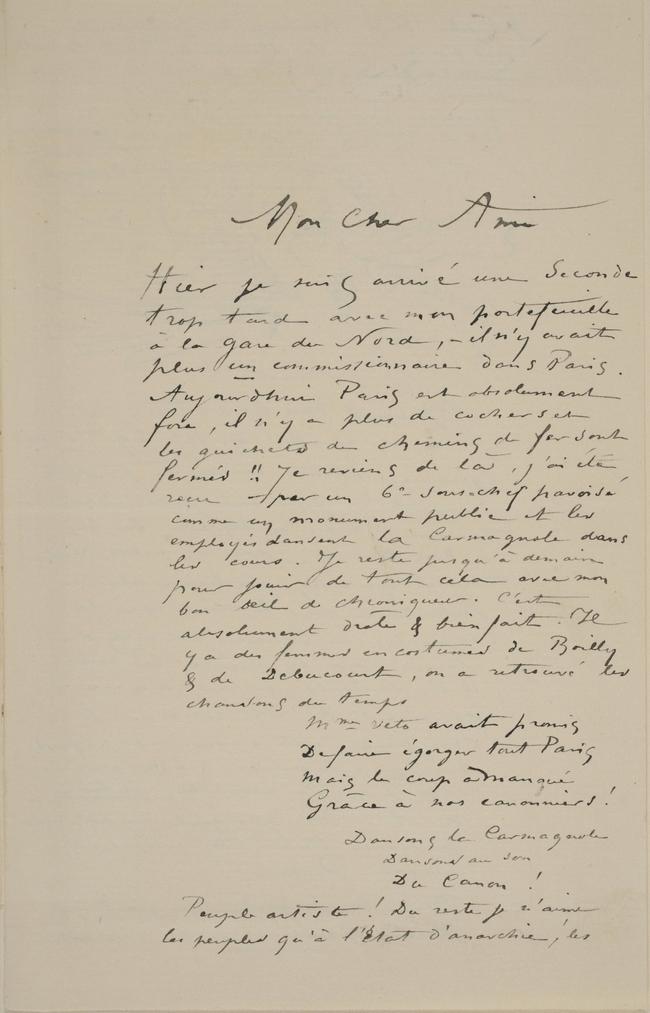 Mon Cher Ami
Hier je suis arrivé une Seconde
trop tard avec mon portefeuille
à la gare du Nord, – il n'y avait
plus un commissionnaire dans Paris.
Aujourdhui Paris est absolument
fou, il n'y a plus de cochers et
les guichets de chemins de fer sont
fermés !! Je reviens de là, j'ai été
recu par un 6e sous-chef pavoisé
comme un monument public et les
employés dansent la Carmagnole dans
les cours. Je reste jusqu'à demain
pour jouir de tout cela avec mon
bon œil de chroniqueur. C'est
absolument drôle & bien fait. Il
y a des femmes en costumes de Boilly
& de Debucourt, on a retrouvé les
chansons du temps
Mme Veto avait promis
De faire égorger tout Paris
Mais le coup a manqué
Grâce à nos canonniers !
Dansons la Carmagnole
Dansons au son
Du Canon !
Peuple artiste ! Du reste je n'aime
les peuples qu'à l'État d'anarchie, les